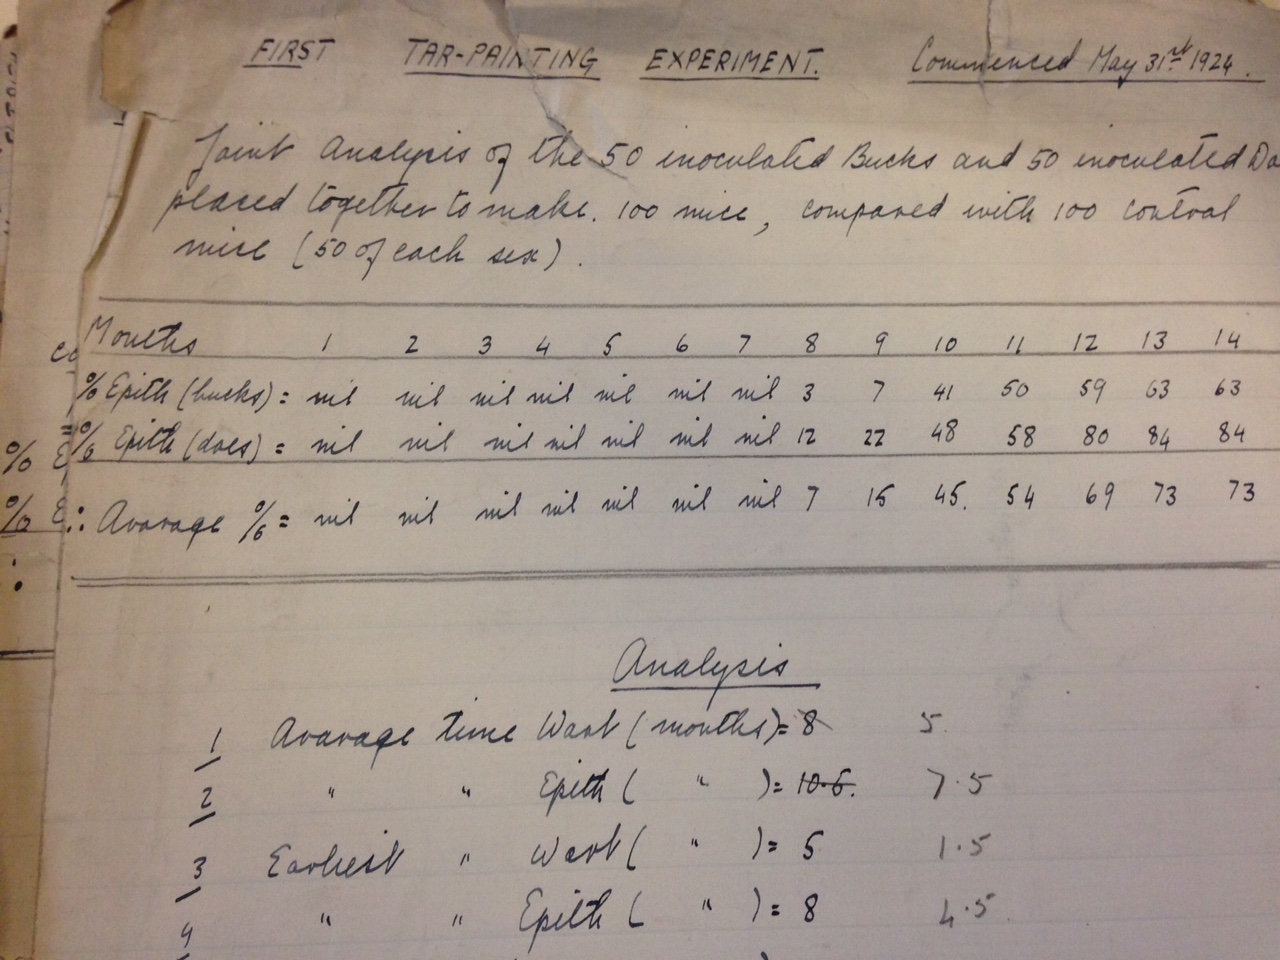 FIRST TAR-PAINTING EXPERIMENT. Commenced May 31st 1924.
Joint Analysis of the 50 inoculated Bucks and 50 inoculated Do
placed together to make. 100 mice, compared with 100 control
mice (50 of each sex).
Months 1 2 3 4 5 6 7 8 9 10 11 12 13 14
% Epith (bucks) = nil nil nil nil nil nil nil 3 7 41 50 59 63 63
% Epith (does) = nil nil nil nil nil nil nil 12 22 48 58 80 84 84
∴ Avarage % = nil nil nil nil nil nil nil 7 15 45. 54 69 73 73
Analysis
1 Avarage time Wart (months) = 8 5.
2 " " Epith ( " ) = 10.6. 7.5
3 Earliest " Wart ( " ) = 5 1.5
4 " " Epith ( " ) = 8 4.5